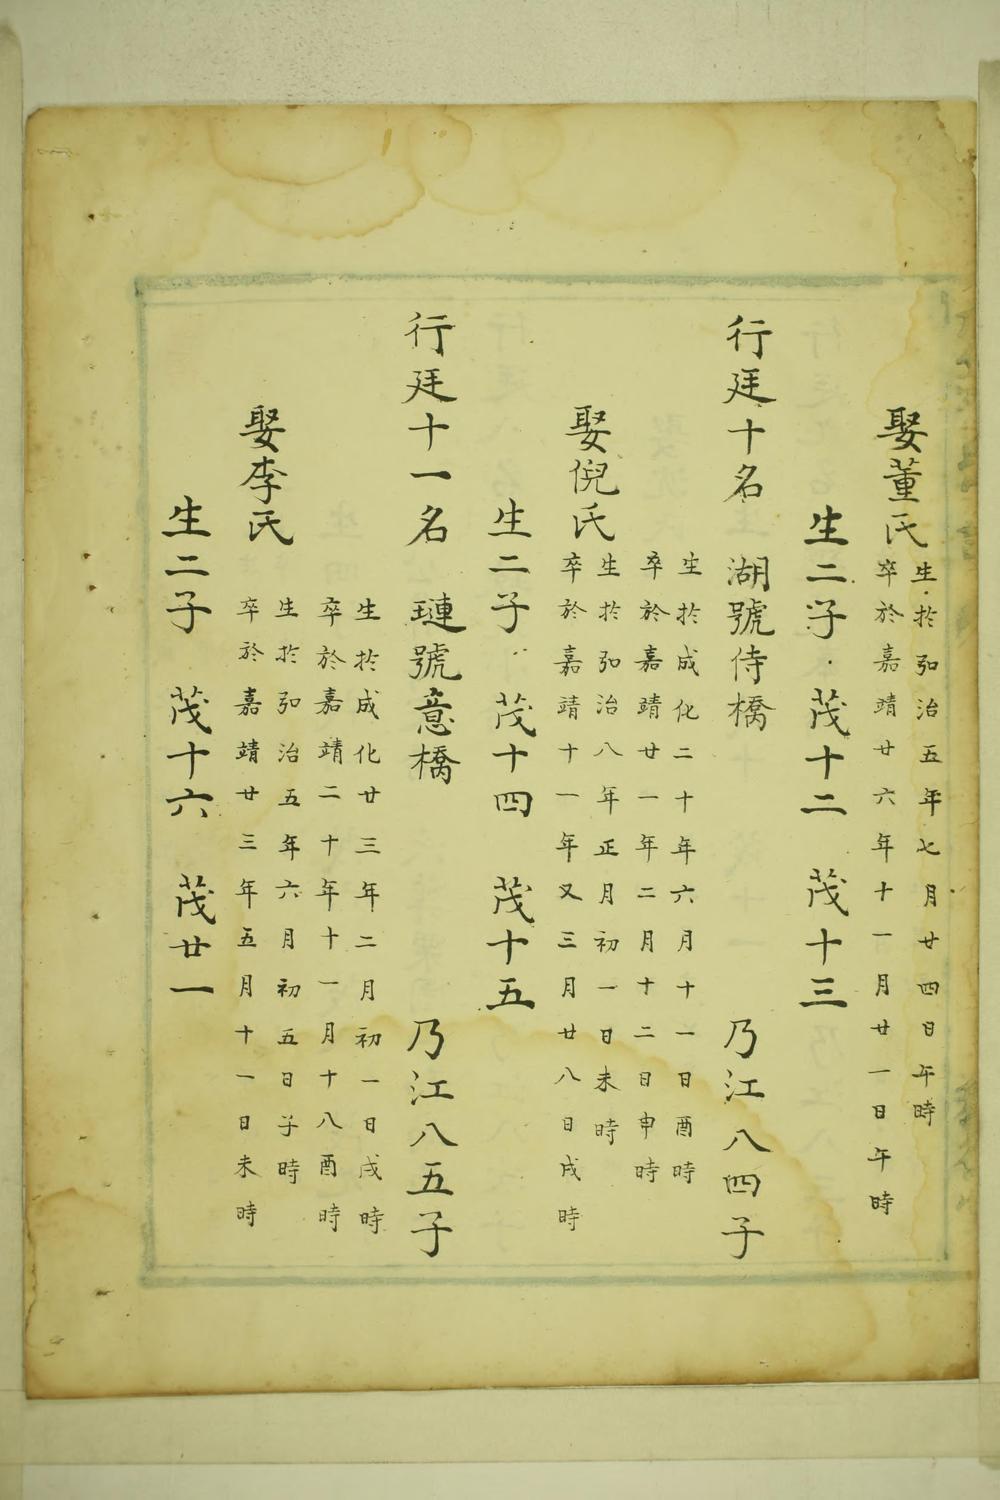 娶董氏
生於弘治五年七月廿四日午時
卒於嘉靖廿六年十一月廿一日午時
生二子 茂十二 茂十三
行廷十名湖號侍橋 乃江八四子
生於成化二十年六月十一日酉時
卒於嘉靖廿一年二月十二日申時
娶倪氏
生於弘治八年正月初一日未時
卒於嘉靖十一年又三月廿八日戌時
生二子 茂十四 茂十五
行廷十一名璉號意橋 乃江八五子
生於成化廿三年二月初一日戌時
卒於嘉靖二十年十一月十八酉時
娶李氏
生於弘治五年六月初五日子時
卒於嘉靖廿三年五月十一日未時
生二子 茂十六 茂廿一